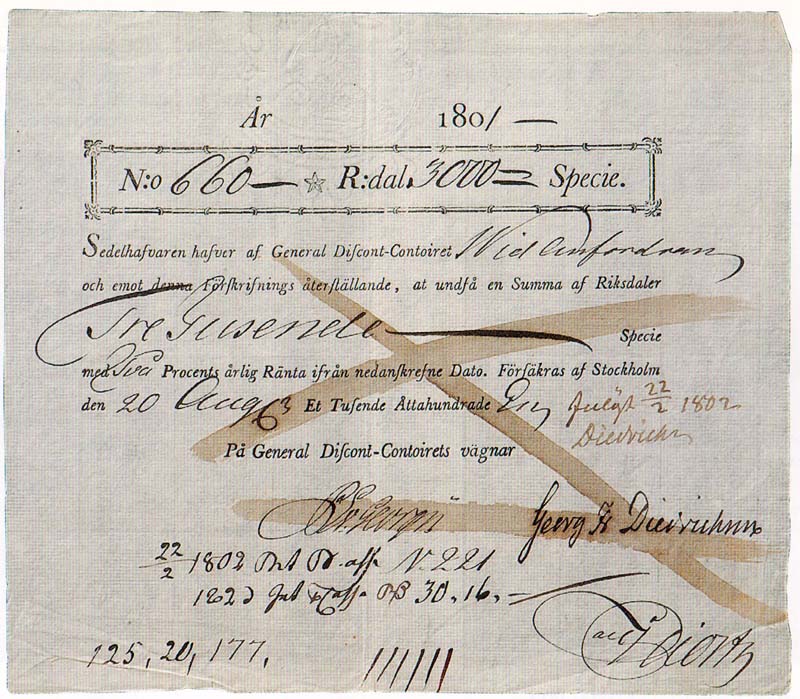 År 1801
N:o 660 R:dal 3000 Specie.
Sedelhafvaren hafver af General Discont-Contoiret Wid Anfordran
och emot denna Förskrifnings återställande, at undfå en Summa af Riksdaler
Tre Tusende Specie
med Två Procents årlig Ränta ifrån nedanskrefne Dato. Försäkras af Stockholm
den 20 Aug Et Tusende Åttahundrade En
22/2 1802
Diedrichs
På General Discont-Contoirets vägnar
Georg Fr Diedrichson
22/2 1802 N. 221
30, 16,
Carl
125, 20, 177,